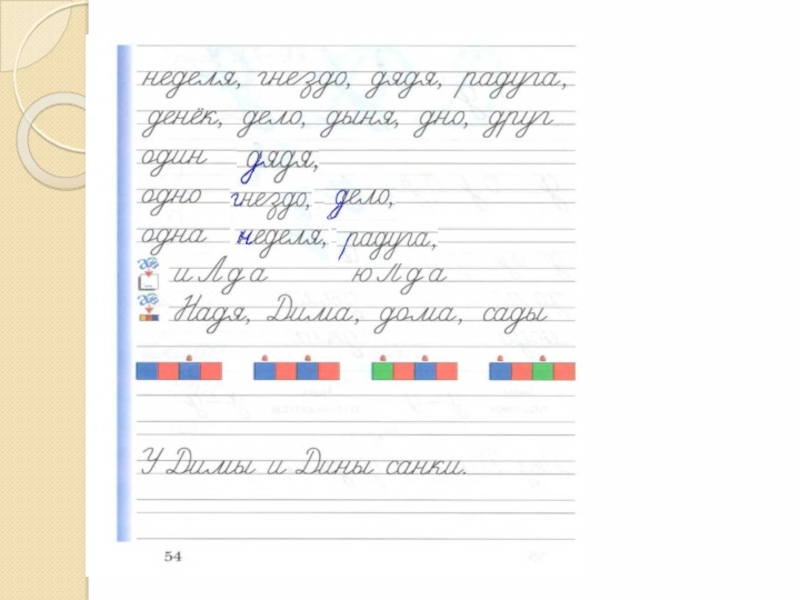 неделя, гнездо, дядя, радуга,
денёк, дело, дыня, дно, друг
один дядя,
одно гнездо, дело,
одна неделя, радуга,
иЛда юЛда
Надя, Дима, дома, сады
У Димы и Дины санки.
54